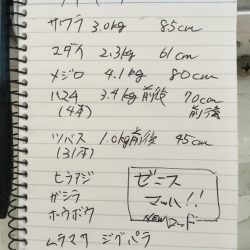 サワラ 3.0kg 85cm
マダイ 2.3kg 61cm
メジロ 4.1kg 80cm
ハマチ 3.4kg前後 70cm前後
(4本)
ツバス 1.0kg前後 45cm
(31本)
ヒラアジ
ガシラ
ホウボウ
ゼニス
マッハ!!
NEWロッド
ムラマサ ジグパラ